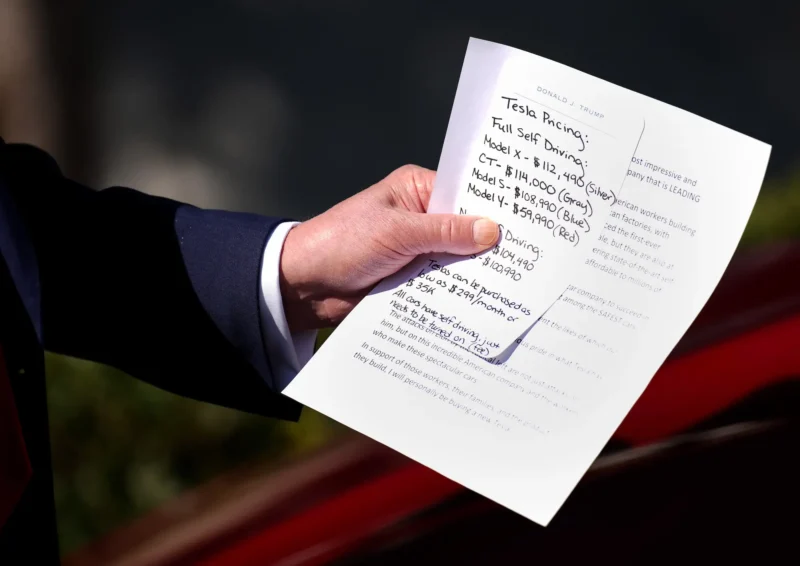 DONALD J. TRUMP
Tesla Pricing:
Full Self Driving:
Model X - $112,490 (Silver)
CT - $114,000 (Gray)
Model S - $108,990 (Blue)
Model Y - $59,990 (Red)
N
Driving:
$104,490
- $100,990
Teslas can be purchased as
low as $299/month or
$35K
All cars have self driving, just
needs to be turned on. (Fee)
ost impressive and
pany that is LEADING
erican workers building
can factories, with
ced the first-ever
le, but they are also at
ering state of the art self
affordable to millions of
car company to succeed
among the SAFEST Cars
nt the likes of which
The attacks on
left are not just attacks
him, but on this incredible American company and the workers
who make these spectacular cars.
In support of those workers, their families, and the
they build, I will personally be buying a new Tesla